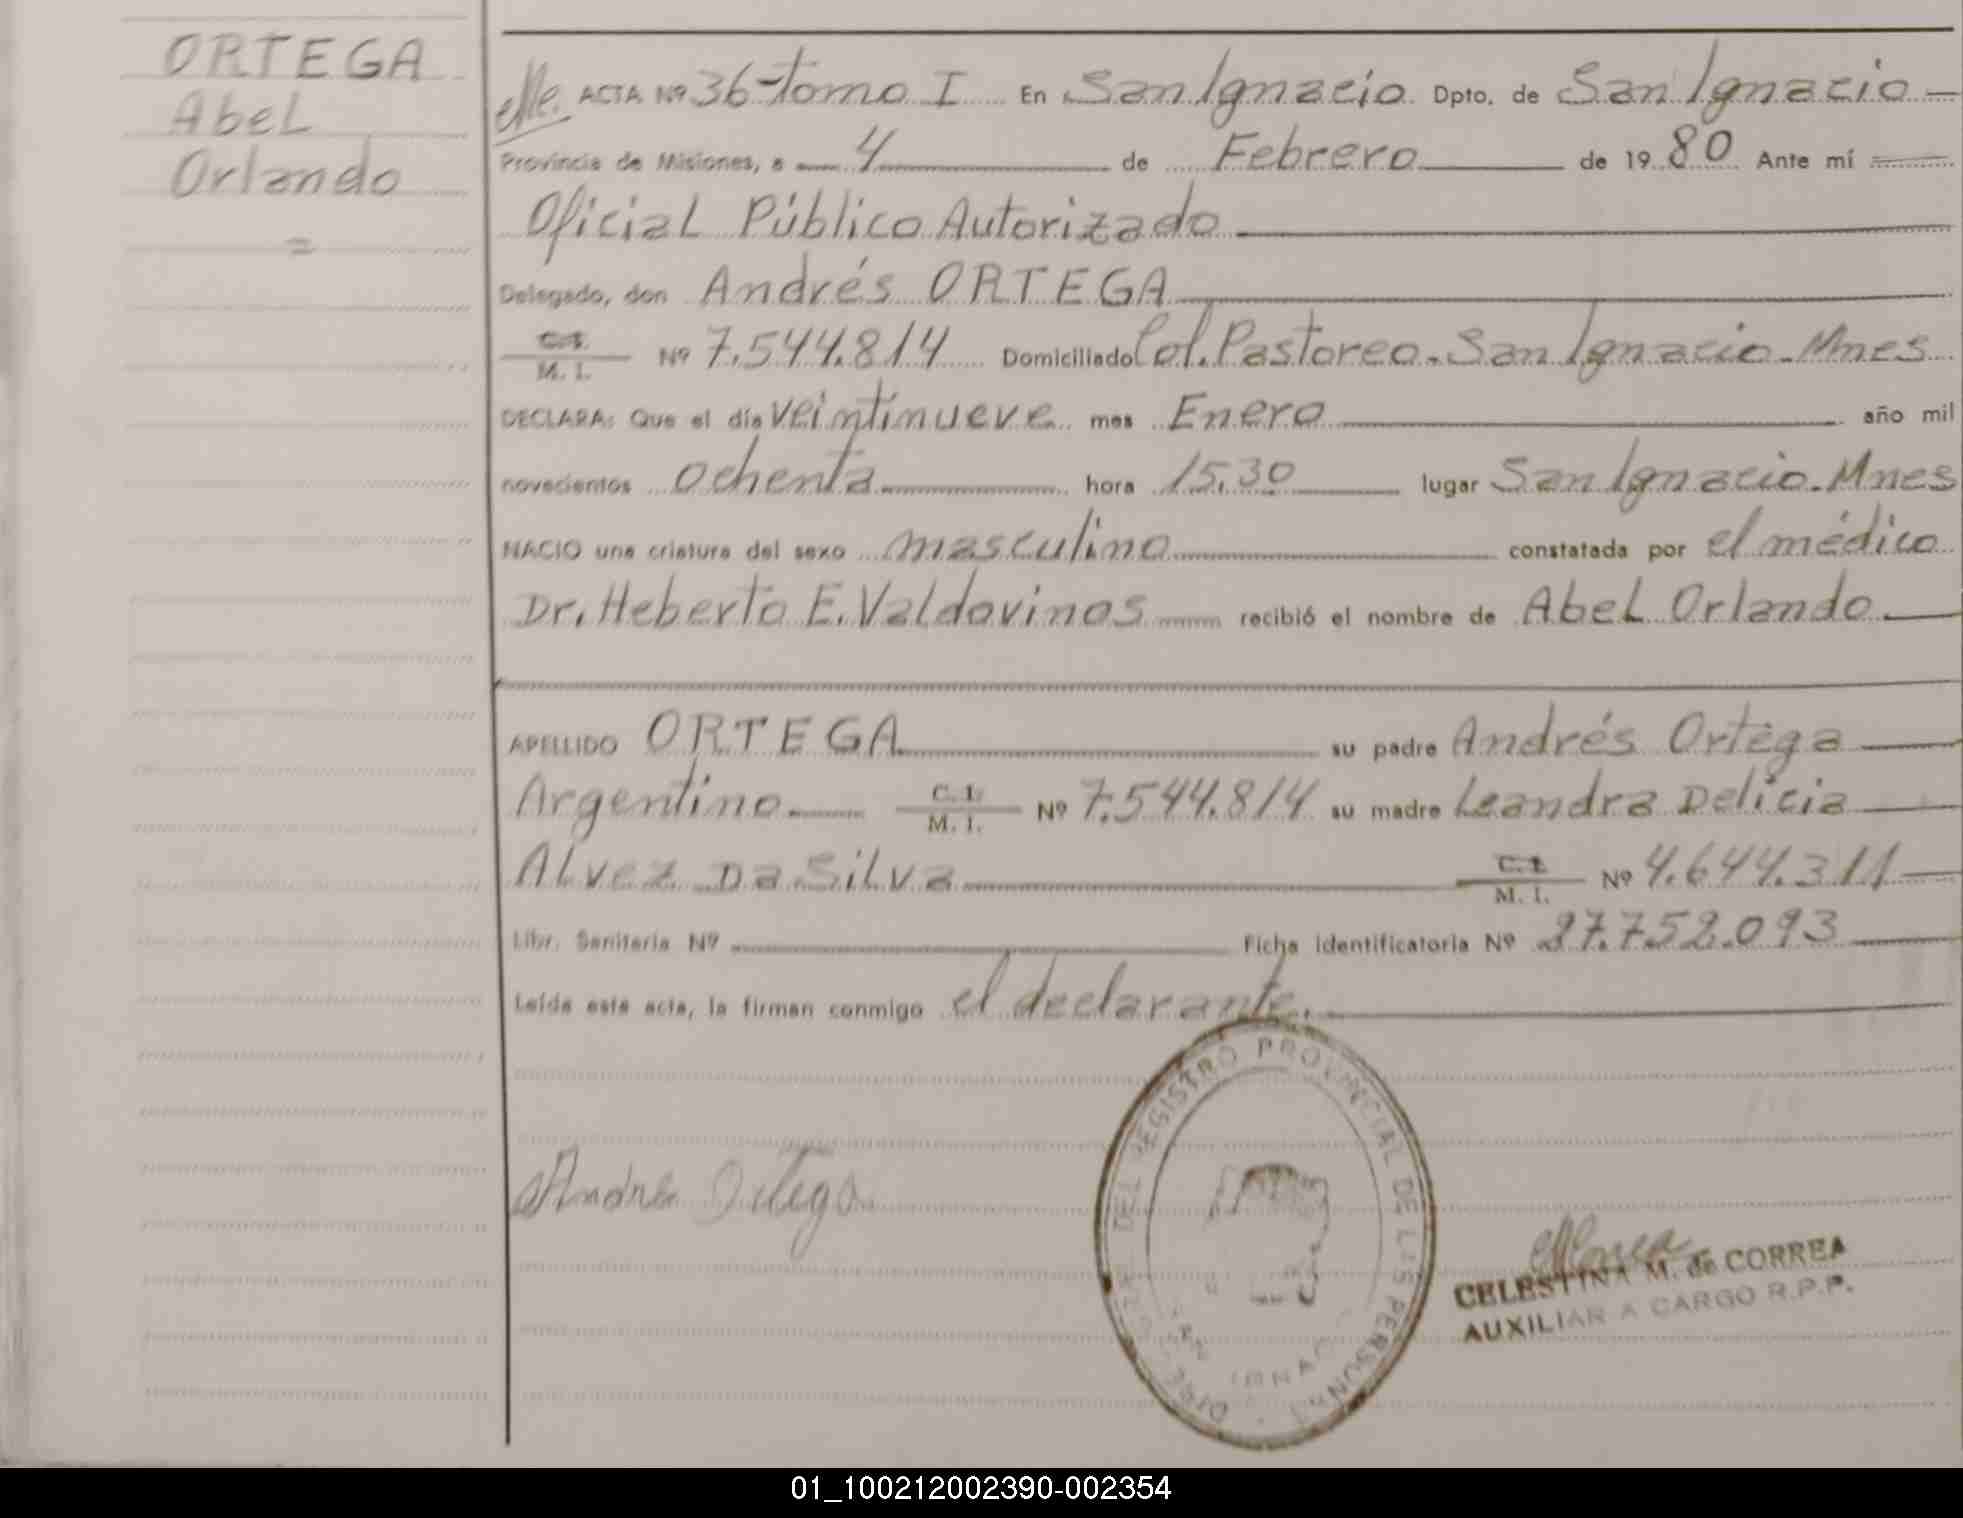 ORTEGA
Abel
Orlando
=
ACTA Nº 36-tomo I En San Ignacio Dpto. de San Ignacio
Provincia de Misiones, a 4 de Febrero de 1980 Ante mí
Oficial Público Autorizado
Delegado, don Andrés ORTEGA
C.I. / M. I. Nº 7.544.814 Domiciliado Col. Pastoreo. San Ignacio. Mnes
DECLARA: Que el día veintinueve mes Enero año mil
novecientos ochenta hora 15.30 lugar San Ignacio. Mnes
NACIO una criatura del sexo masculino constatada por el médico
Dr. Heberto E. Valdovinos recibió el nombre de Abel Orlando
APELLIDO ORTEGA su padre Andrés Ortega
Argentino C. I. / M. I. Nº 7.544.814 su madre Leandra Delicia
Alvez Da Silva C. I. / M. I. Nº 4.644.311
Libr. Sanitaria Nº Ficha identificatoria Nº 27.752.093
Leída este acta, la firman conmigo el declarante.
DEL REGISTRO PROVINCIAL DE LAS PERSONAS
Andre Ortega
CELESTINA M. de CORREA
AUXILIAR A CARGO R.P.P.
01_100212002390-002354